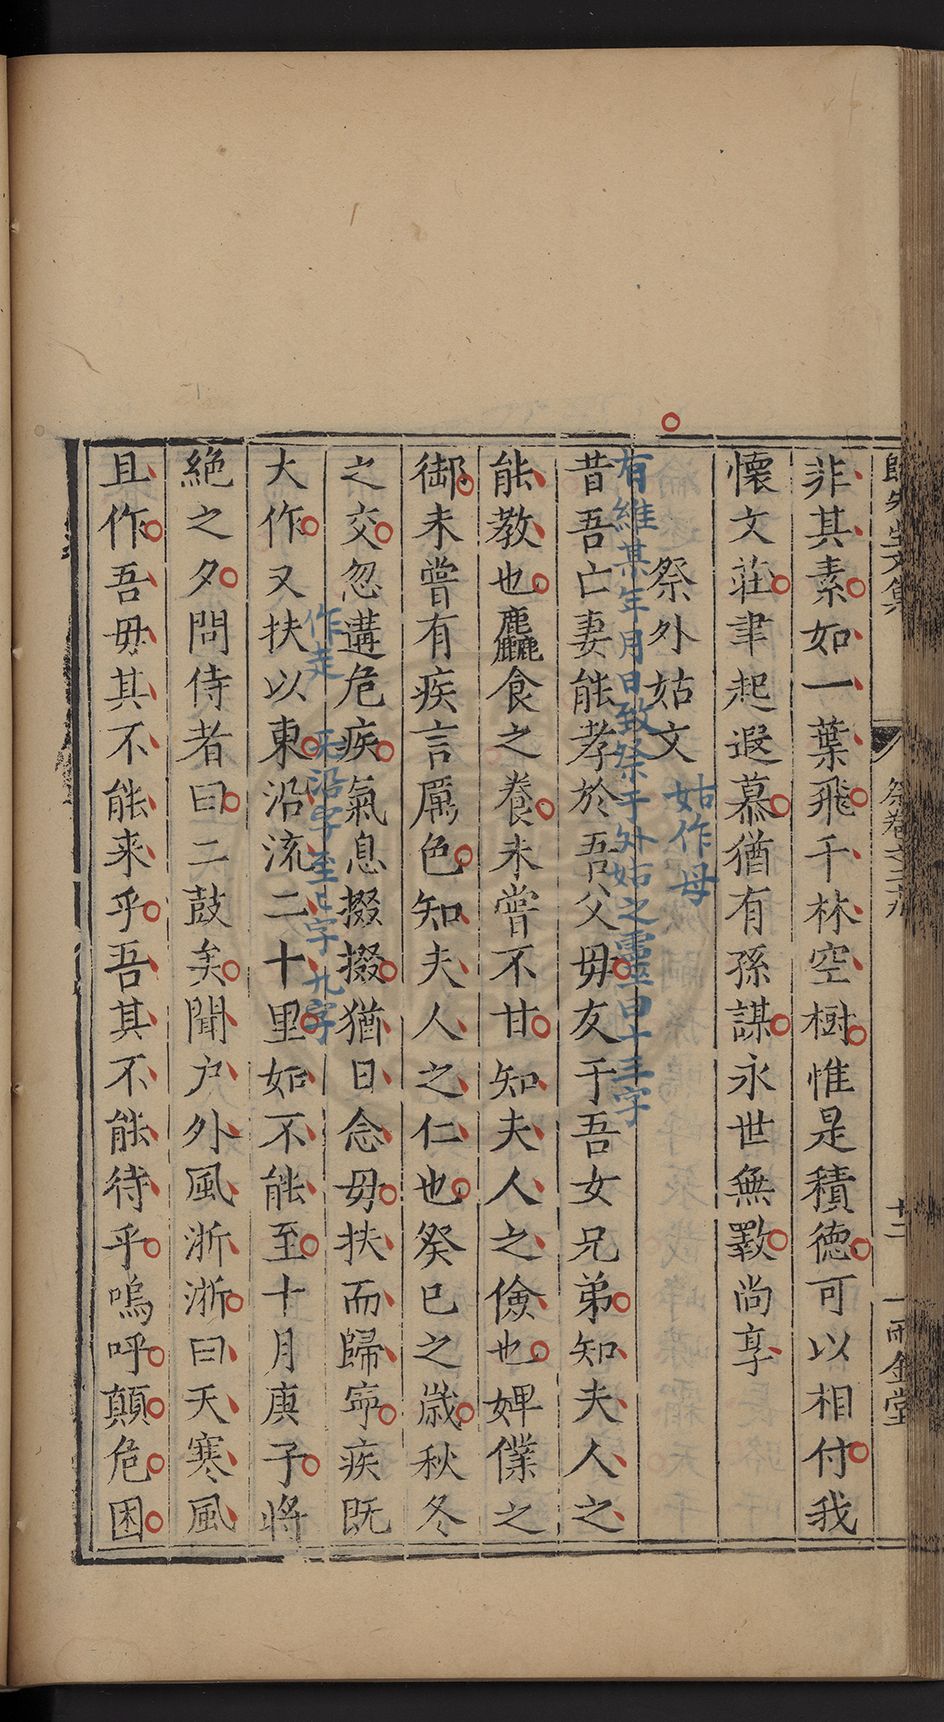 歸先生文集
祭卷之三九
廿二
雨金堂
非其素如一葉飛千林空樹惟是積德可以相付我
懷文莊聿起遐慕猶有孫謀永世無斁尚享
祭外姑文
姑作母
有維某年月日致祭于外姑之靈曰十三字
昔吾亡妻能孝於吾父毋友于吾女兄弟知夫人之
能教也麤食之養未嘗不甘知夫人之儉也婢僕之
御未嘗有疾言厲色知夫人之仁也癸巳之歲秋冬
之交忽遘危疾氣息掇掇猶日念毋扶而歸寕疾既
作走
大作又扶以東沿流二十里如不能至十月庚子將
絕之夕問侍者曰二鼓矣聞户外風淅淅曰天寒風
且作吾毋其不能来乎吾其不能待乎嗚呼顛危困